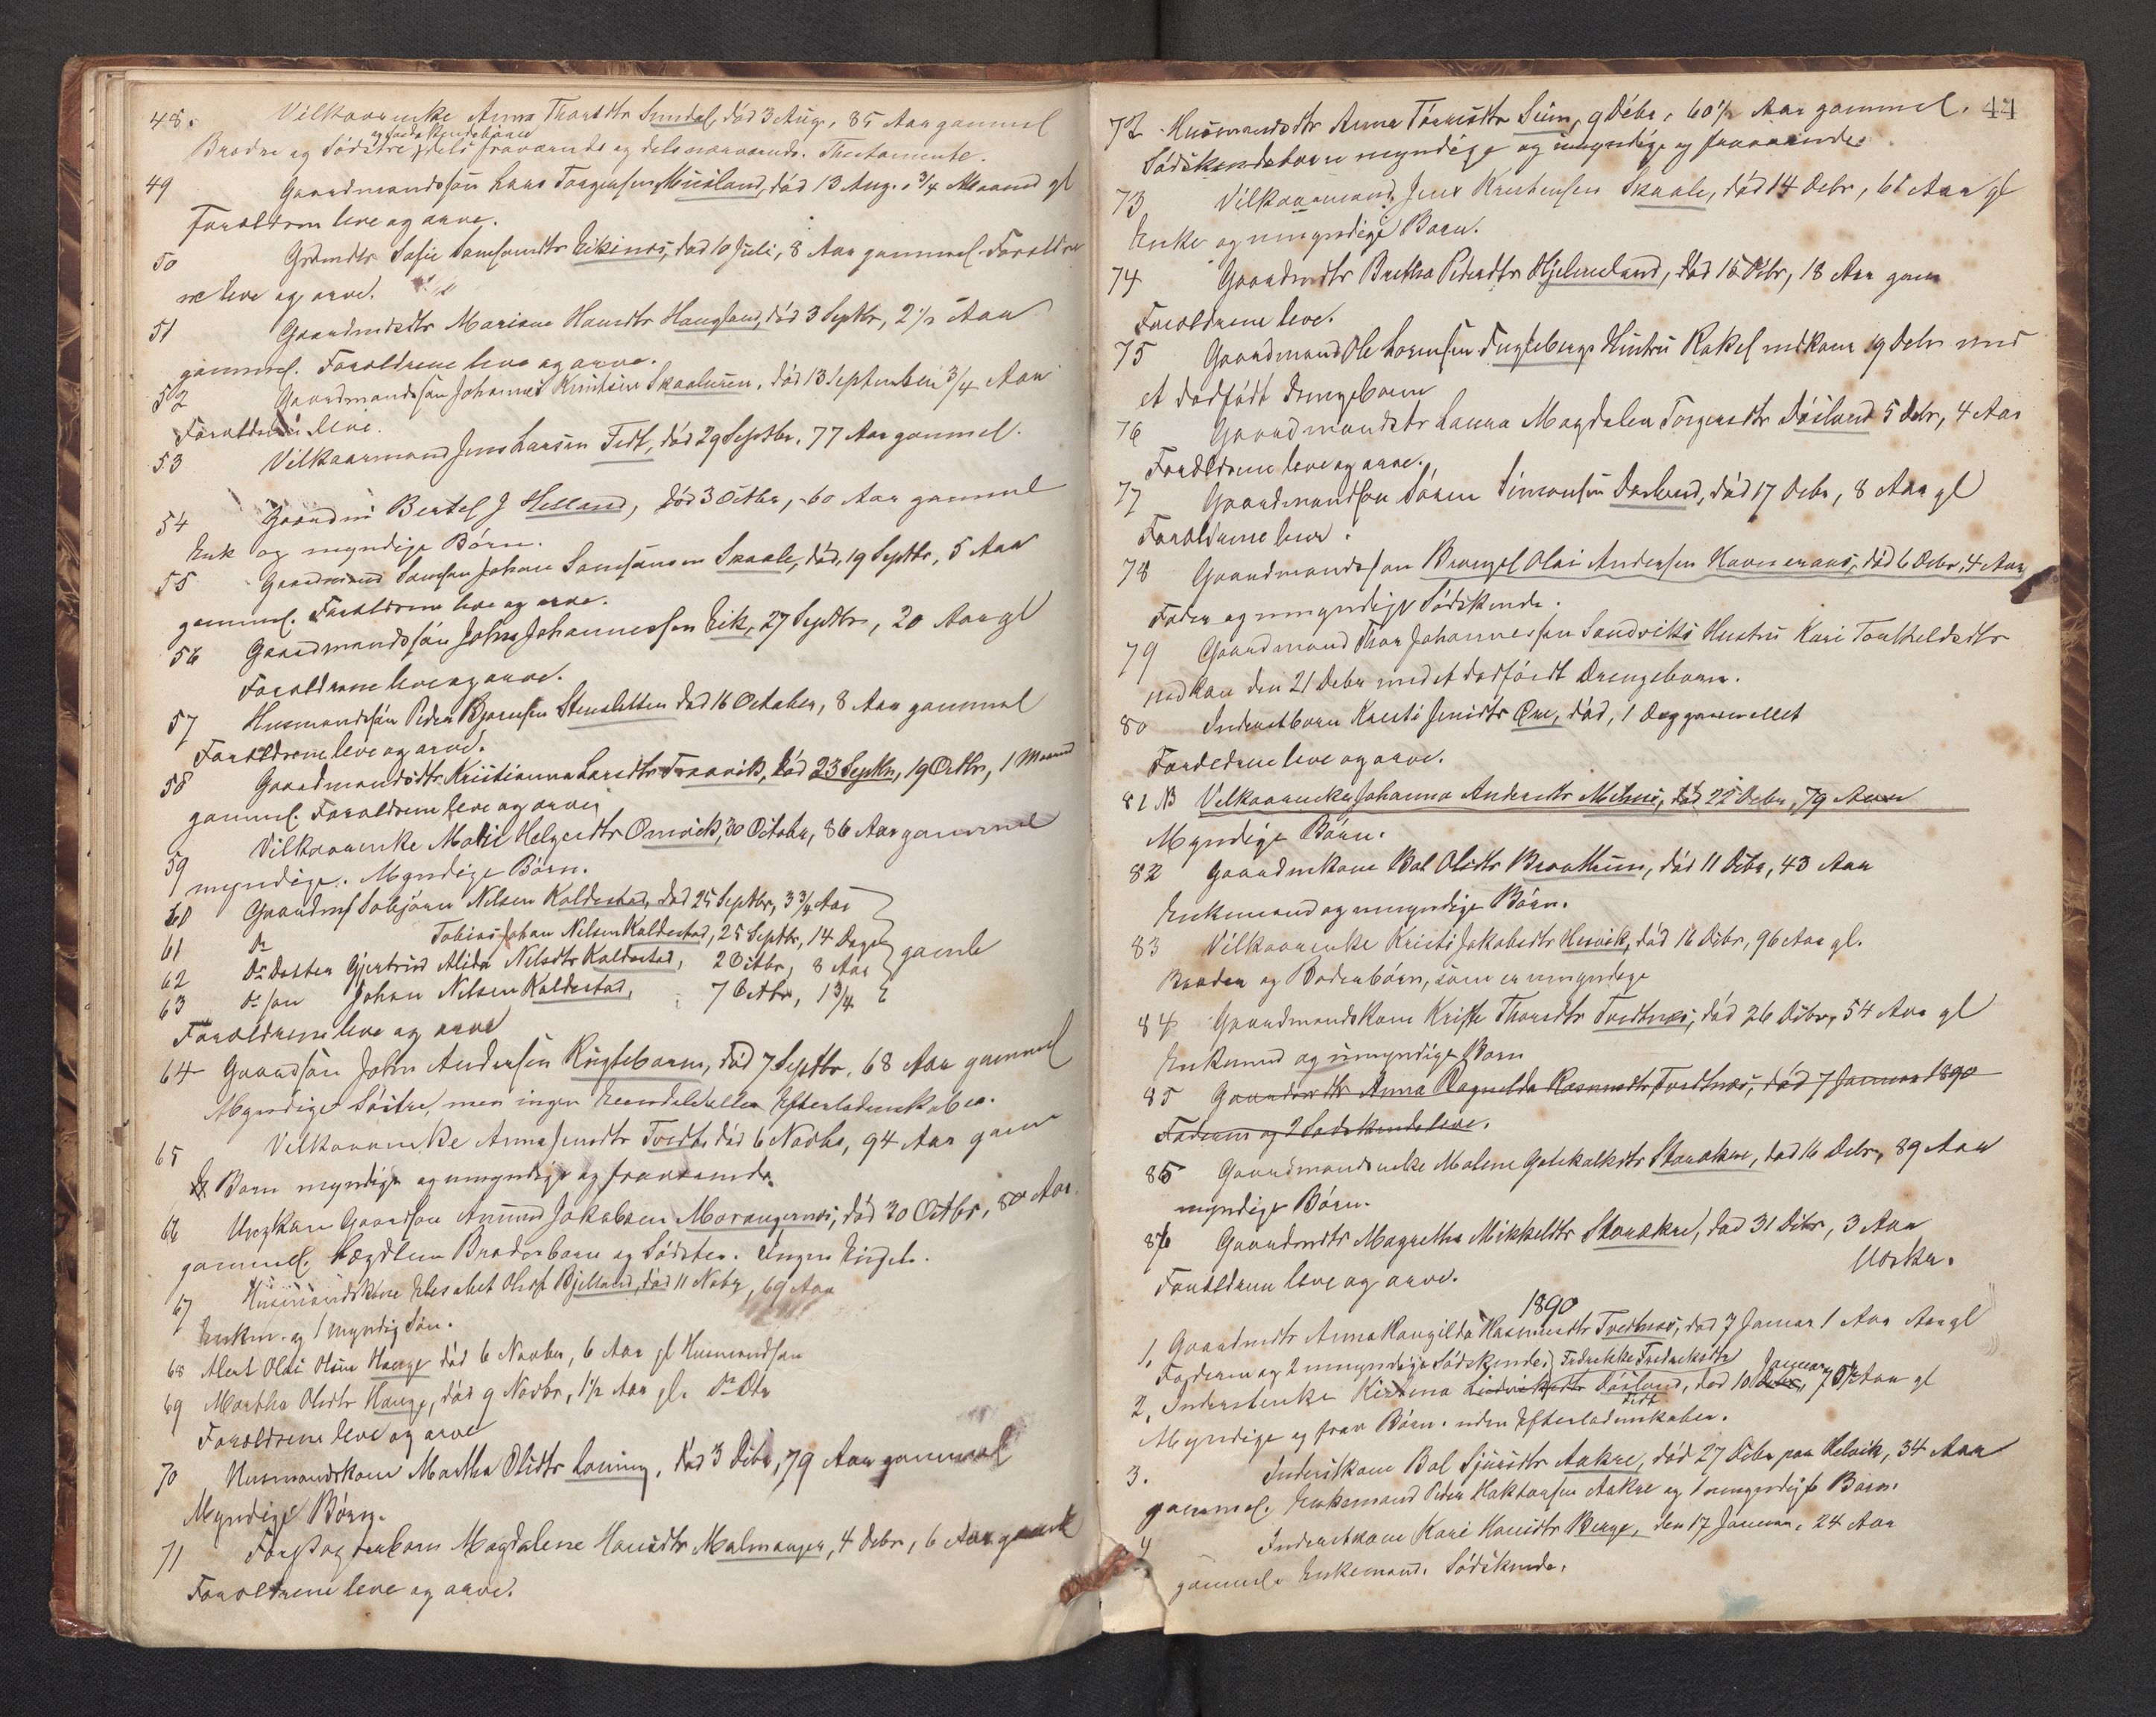 48. Vilkaarenke Anna Thorsdtr Sundal, død 3 Aug., 85 Aar gammel
og Sødskendebørn
Brødre og Södstre dels fraværende og dels nærværende. Thestamente.
49 Gaardmandssøn Lars Torgersen Musland, død 13 Aug. 3/4 Maaned gl
Forældren leve og arve.
50 Grdmdtr Sofie Samsondtr Eikenæs, død 10 Juli, 8 Aar gammel. Forældre
ne leve og arve.
51 Gaardmdsdtr Mariane Hansdtr Haugland, død 3 Septbr, 2 1/2 Aar
gammel. Forældrene leve og arve.
52 Gaardmandssøn Johannes Knutsen Skaaluren, død 13 September 3/4 Aar
Forældrene leve.
53 Vilkaarmand Jens Larsen Tedt, død 29 Septbr. 77 Aar gammel.
54 Gaardm Bertel J Helland, død 3 Octbr, 60 Aar gammel
Enk og myndige Börn.
55 Gaardmand Samson Johan Samsonsen Skaale, død, 19 Septbr, 5 Aar
gammel. Forældrene leve og arve.
56 Gaardmandssøn Johs Johannessen Eik, 27 Septbr, 20 Aar gl
Forældrene leve og arve.
57 Husmandssøn Peder Bjørnsen Steensletten død 16 October, 8 Aar gammel
Forældrene leve og arve.
58 Gaardmandsdtr Kristianna Larsdtr Traavik, død 23 Septbr, 19 Octbr, 1 Maaned
gammel. Forældrene leve og arve
59 Vilkaarenke Malie Helgesdtr Omvik, 30 October, 86 Aar gammel
myndige. Myndige Börn.
60 Gaardms Torbjørn Nilsen Kaldestad, død 25 Septbr, 3 3/4 Aar
61 Do Tobias Johan Nilsen Kaldestad, 25 Septbr, 14 Dage
62 Do Datter Gjertrud Alida Nilsdtr Kaldestad, 2 Octbr, 8 Aar gamle
63 do søn Johan Nilsen Kaldestad, 7 Octbr, 1 3/4
Forældrene leve og arve
64 Gaardsøn John Andersen Ruglebarm, død 7 Septbr. 68 Aar gammel
Myndige Søstre, men ingen Efterladenskaber.
65 Vilkaarenke Anna Jensdtr Tvedt død 6 Novbr, 94 Aar gam
Børn myndige og umyndige og fraværende.
66 Ungkarl Gaardsøn Amund Jakobsen Morangernæs, død 20 Octbr, 80 Aar.
gammel. Lægdlem Broderbarn og Södster. Ingen
67 Husmandskone Elesabet Olsdt Bjelland, død 11 Nobr, 69 Aar
Enkm. og 1 myndig Søn.
68 Alert Olai Olsen Hauge død 6 Novber, 6 Aar gl Husmandsøn
69 Martha Olsdtr Hauge, død 9 Novbr, 1 1/2 Aar gl. Do Dtr
Forældrene leve og arve
70 Husmandskone Martha Olsdtr Løning, død 3 Debr, 79 Aar gammel
Myndige Børn.
71 barn Magdalene Hansdtr Malmanger, 4 Debr, 6 Aar gamle
Forældrene leve og arve.
44
72 Husmandsdtr Anna Tormodtr Sum, 9 Debr, 60 1/2 Aar gammel.
Södskendebørn myndige og umyndige og fraværende.
73 Vilkaarmand Jens Kristensen Skaale, død 14 Debr, 61 Aar gl
Enke og umyndige Barn.
74 Gaardmdtr Bretha Pedersdtr Hjelmeland, død 15 Debr, 18 Aar gam
Forældrene leve.
75 Gaardmand Ole Larsensen Fugleberg Hustru Rakel nedkom 19 Debr med
et dødfødt Drengebarn
76 Gaardmandsdtr Laura Magdalen Torgersdtr Døsland 5 Debr, 4 Aar
Forældrene leve og arve.
77 Gaardmandssøn Sören Simonsen Døsland, død 17 Debr, 8 Aar gl
Forældrene leve.
78 Gaardmandssøn Brengel Olai Andersen Havneraas, død 6 Debr, 4 Aar,
Fader og umyndige Södskende.
79 Gaardmand Thor Johannessen Sandviks Hustru Kari Torkeldsdtr
nedkom den 21 Debr med et dødfödt Drengebarn.
80 Inderstbarn Kristi Jensdtr Øre, død, 1 Dag gammellet
Forældrene leve og arve.
81 NB Velkaarenke Johanna Andersdtr Melnæs, død 22 Debr, 79 Aar
Myndige Börn.
82 Gaardmkone Bol Olsdtr Braathun, død 11 Debr, 43 Aar
Enkemand og umyndige Börn.
83 Vilkaarenke Kristi Jakobsdtr Hesvik, død 16 Debr, 96 Aar gl.
Broder og Broderbörn, som er umyndige
84 Gaardmandskone Kristi Thorsdtr Tvedtnæs, død 26 Debr, 54 Aar gl
Enkmand og umyndige Børn
85 Gaardmdtr Anna Ragnilda Rasmusdtr Tvedtnæs, død 7 Januar 1890
Faderen og 2 Sødskende leve.
85 Gaardmandsenke Malene Gotskalksdtr Skarakre, død 16 Debr, 89 Aar
myndige Börn.
86 Gaardmdtr Magretha Mikkelsdtr Skarakre, død 31 Debr, 3 Aar
Forældrene leve og arve.
1890
1. Gaardmdtr Anna Rangilda Rasmusdtr Tvedtnæs, død 7 Januar 1 Aar Aar gl
Faderen og 2 umyndige Södskende. Fredrikke Fredriksdtr
2. Inderstenke Kirstina Døsland, død 10 Debr, Januar 70 1/2 Aar gl
Tedt
Myndige og fravr Börn. uden Efterladenskaber.
3. Inderstkone Bol Sjursdtr Aakre, død 27 Debr paa Helvik, 34 Aar
gammel. Enkemand Peder Haktorsen Aakre og 1 umyndigt Barn.
4 Inderstkone Kari Hansdtr Berge, den 17 Januar, 24 Aar
gammel. Enkemand. Södskende.